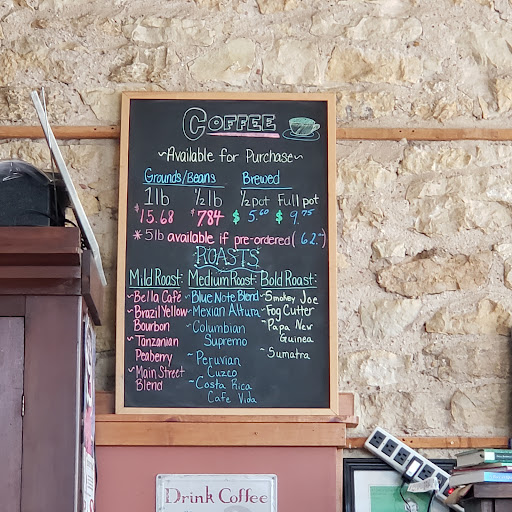 COFFEE
~Available for Purchase~
Grounds/Beans Brewed
1lb ½lb ½pot Full pot
$15.68 $7.84 $5.60 $9.75
*5lb available if pre-ordered (62.-)
ROASTS
Mild Roast: Medium Roast: Bold Roast:
~Bella Café ~Blue Note Blend ~Smokey Joe
~Brazil Yellow Bourbon ~Mexian Altura ~Fog Cutter
~Tanzanian Peaberry ~Columbian Supremo ~Papa New Guinea
~Main Street Blend ~Peruvian Cuzco ~Sumatra
~Costa Rica Cafe Vida
Drink Coffee